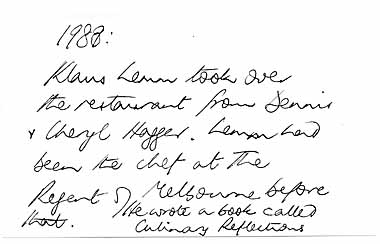 1988:
Klaus Lemm took over
the restaurant from Dennis
& Cheryl Hagger. Lemm had
been the chef at the
Regent of Melbourne before
that. He wrote a book called
Culinary Reflections